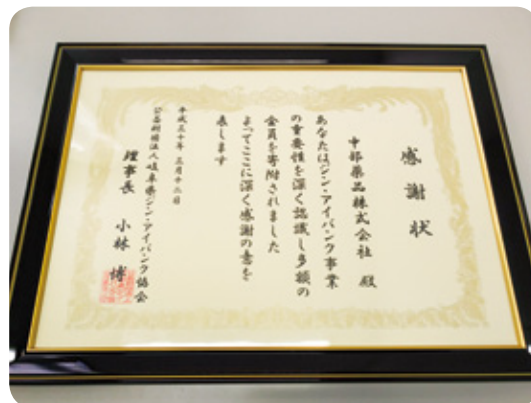 感謝状
中部薬品株式会社 殿
あなたはジン・アイバンク事業
の重要性を深く認識し多額の
金員を寄附されました
よってここに深く感謝の意を
表します
平成三十年 三月十二日
公益財団法人岐阜県ジン・アイバンク協会
理事長 小林 博